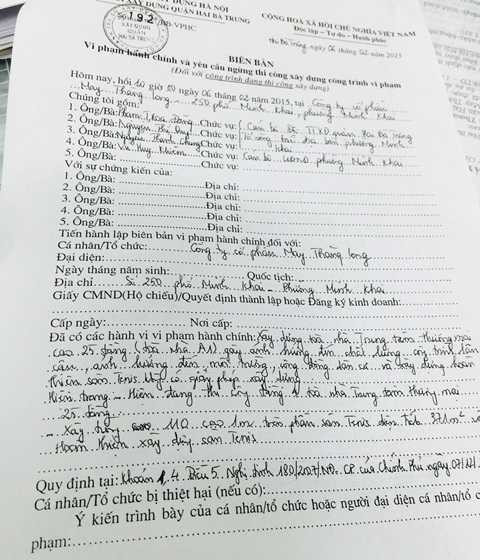 XÂY DỰNG HÀ NỘI
XÂY DỰNG QUẬN HAI BÀ TRƯNG
CỘNG HOÀ XÃ HỘI CHỦ NGHĨA VIỆT NAM
Độc lập – Tự do – Hạnh phúc
192 /BB-VPHC
Bà Trưng, ngày 06 tháng 02 năm 2015
BIÊN BẢN
Vi phạm hành chính và yêu cầu ngừng thi công xây dựng công trình vi phạm
(Đối với công trình đang thi công xây dựng)
Hôm nay, hồi 10 giờ ngày 06 tháng 02 năm 2015, tại Công ty cổ phần
May Thăng Long 250 phố Minh Khai, phường Minh Khai
Chúng tôi gồm:
1. Ông/Bà: Chức vụ: Cán bộ TTXD quận Hai Bà Trưng
2. Ông/Bà: Nguyễn Chức vụ: phường Minh
3. Ông/Bà: Nguyễn Thành Chung Chức vụ: Khai
4. Ông/Bà: Vũ Huy Chức vụ: Cán bộ phường Minh Khai
5. Ông/Bà:
Với sự chứng kiến của:
1. Ông/Bà: Địa chỉ:
2. Ông/Bà: Địa chỉ:
3. Ông/Bà: Địa chỉ:
4. Ông/Bà: Địa chỉ:
5. Ông/Bà: Địa chỉ:
Tiến hành lập biên bản vi phạm hành chính đối với:
Cá nhân/Tổ chức: Công ty cổ phần May Thăng Long
Đại diện:
Ngày tháng năm sinh: Quốc tịch:
Địa chỉ Số 250 phố Minh Khai – Phường Minh Khai
Giấy CMND(Hộ chiếu)/Quyết định thành lập hoặc Đăng ký kinh doanh:
Cấp ngày: Nơi cấp:
Đã có các hành vi vi phạm hành chính: Xây dựng toà nhà Trung tâm thương mại
cao 25 tầng (toà nhà A1) gây ảnh hưởng đến chất lượng công trình lân
cận, ảnh hưởng đến môi trường, cộng đồng dân cư và xây dựng hoàn
thiện sân Tenis có giấy phép xây dựng
Hiện trạng: - Hiện đang thi công tầng 1 toà nhà Trung tâm thương mại
25 tầng
- Xây tường 110 cao 1m trên phần sân Tenis diện tích 371m² và
Hoàn thiện xây dựng sân Tenis
Quy định tại: Khoản 1, 4 Điều 5 Nghị định 180/2007/NĐ-CP của Chính Phủ ngày 07/12/
Cá nhân/Tổ chức bị thiệt hại (nếu có):
Ý kiến trình bày của cá nhân/tổ chức hoặc người đại diện cá nhân/tổ c
phạm: